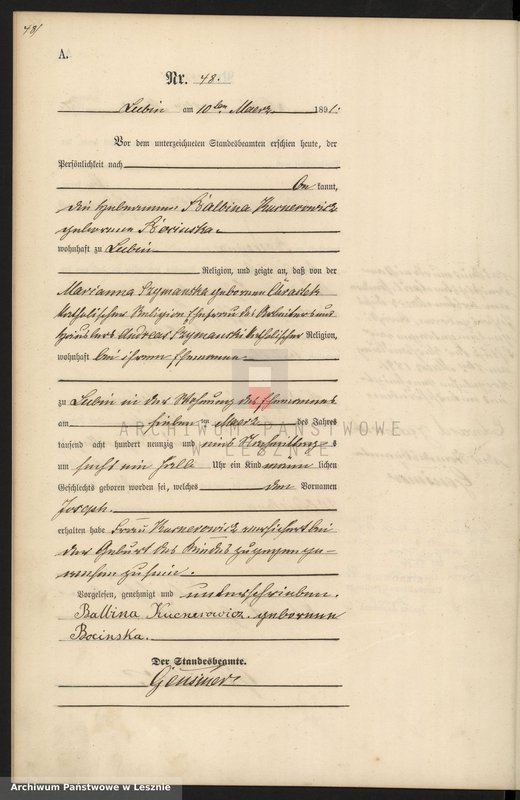 48/
A.
Nr. 48.
Lubin am 10ten Maerz 1891.
Vor dem unterzeichneten Standesbeamten erschien heute, der
Persönlichkeit nach
be kannt,
die Hebeamme Balbina Kucnerowicz
geborene Bocinska
wohnhaft zu Lubin
Religion, und zeigte an, daß von der
Marianna Szymanska geborenen
katholischer Religion Ehefrau des Arbeiters und
Häuslers Andreas Szymanski katholischer Religion,
wohnhaft bei ihrem Ehemanne
zu Lubin in der Wohnung des Ehemannes
am sieben ten Maerz des Jahres
tausend acht hundert neunzig und eins Nachmittags
um fünf ein halb Uhr ein Kind maenn lichen
Geschlechts geboren worden sei, welches den Vornamen
Joseph
erhalten habe Frau Kucnerowicz versichert bei
der Geburt des Kindes zugegen ge-
wesen zu sein.
Vorgelesen, genehmigt und unterschrieben.
Balbina Kucnerowicz. geborene
Bocinska.
Der Standesbeamte.
ARCHIWUM PAŃSTWOWE
W LESZNIE
Archiwum Państwowe w Lesznie